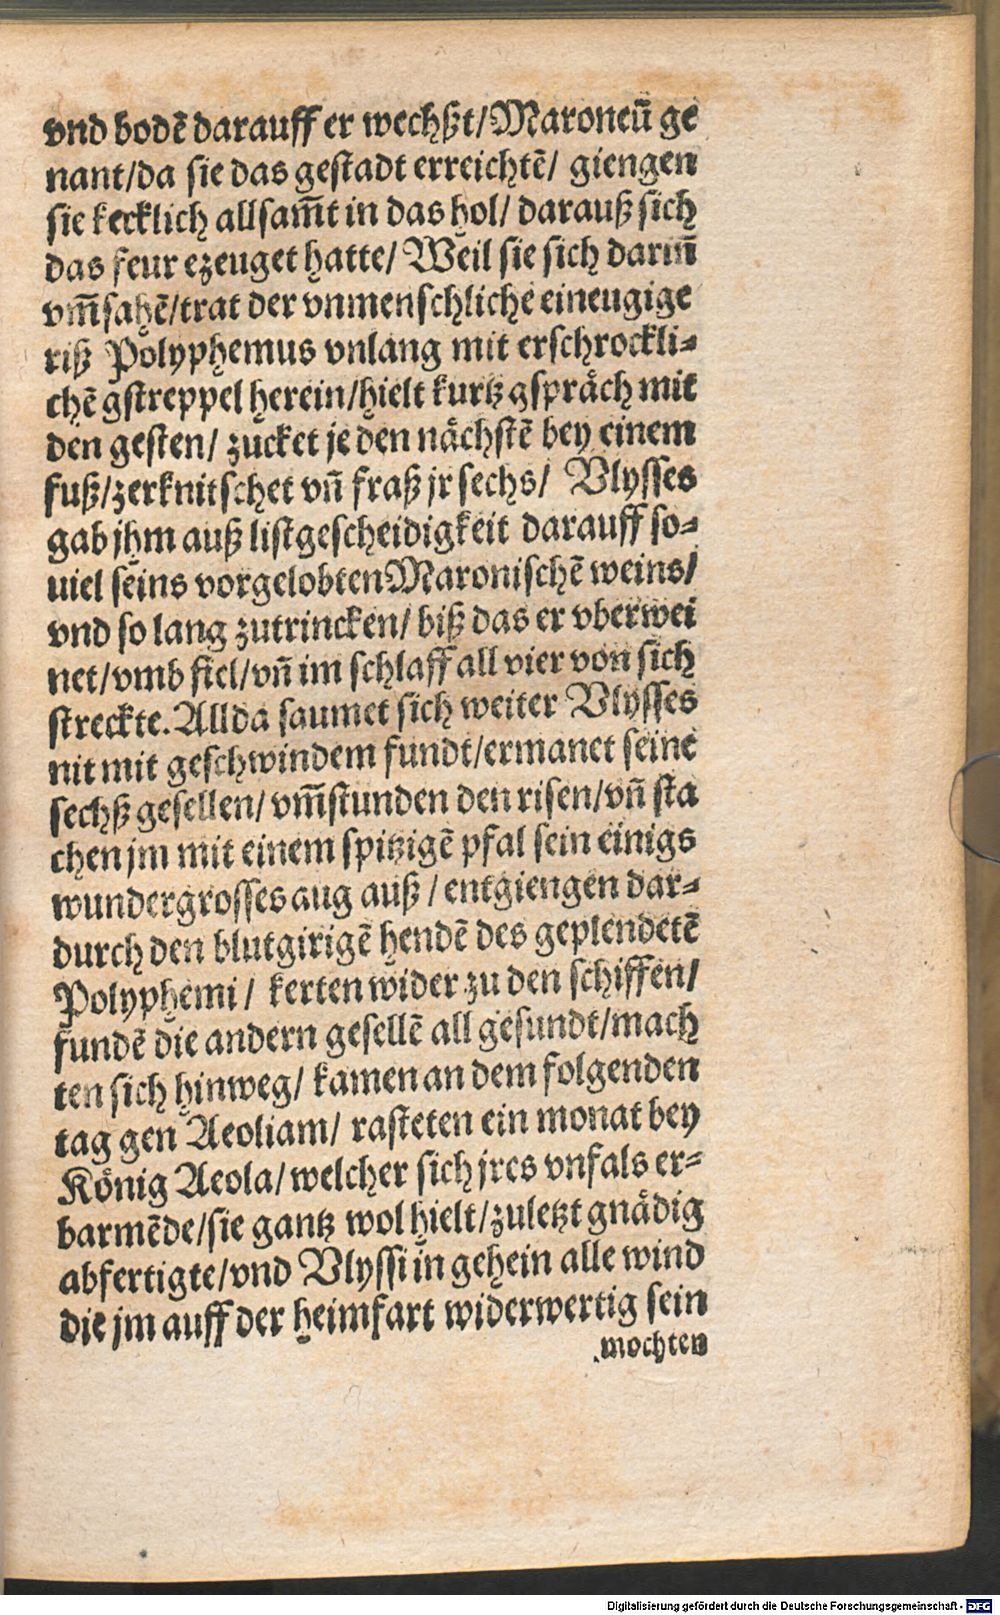 vnd bodē darauff er wechßt/Maroneuͤ ge
nant/da sie das gestadt erreichtē/ giengen
sie kecklich allsam̄t in das hol/ darauß sich
das feur ezeuget hatte/ Weil sie sich darin̄
vm̄sahē/trat der vnmenschliche eineugige
riß Polyphemus vnlang mit erschrockli⸗
chē gstreppel herein/hielt kurtz gspraͤch mit
den gesten/ zucket je den naͤchstē bey einem
fuß/zerknitschet vn̄ fraß jr sechs/ Vlysses
gab jhm auß listgescheidigkeit darauff so⸗
uiel seins vorgelobten Maronischē weins/
vnd so lang zutrincken/ biß das er vberwei
net/vmb fiel/vn̄ im schlaff all vier von sich
streckte. Allda saumet sich weiter Vlysses
nit mit geschwindem fundt/ermanet seine
sechß gesellen/ vm̄stunden den risen/vn̄ sta
chen jm mit einem spitzigē pfal sein einigs
wundergrosses aug auß / entgiengen dar⸗
durch den blutgirigē hendē des geplendetē
Polyphemi/ kerten wider zu den schiffen/
fundē die andern gesellē all gesundt/mach
ten sich hinweg/ kamen an dem folgenden
tag gen Aeoliam/ rasteten ein monat bey
Koͤnig Aeola/ welcher sich jres vnfals er⸗
barmēde/sie gantz wol hielt/zuletzt gnaͤdig
abfertigte/vnd Vlyssi in gehein alle wind
die jm auff der heimfart widerwertig sein
mochten
Digitalisierung gefördert durch die Deutsche Forschungsgemeinschaft - DFG